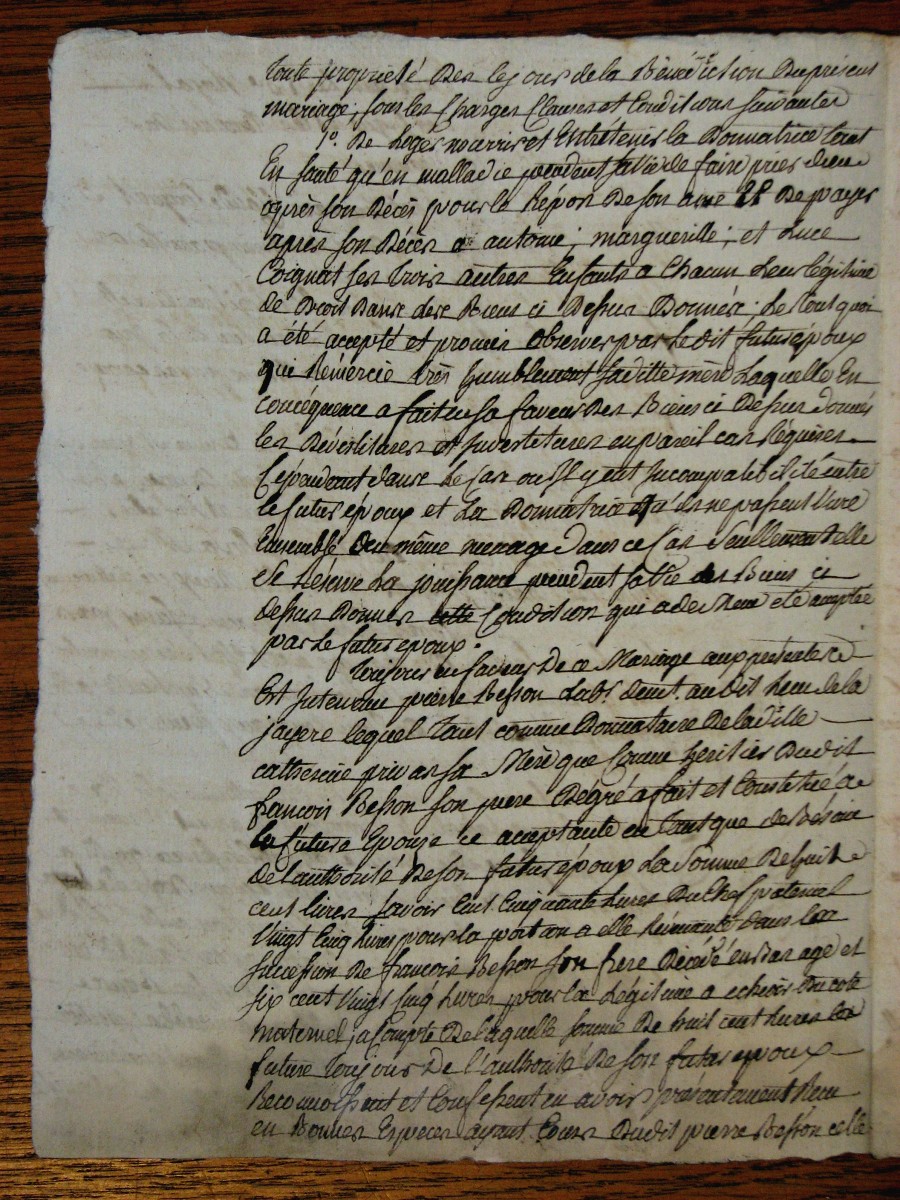 toute propriété Des le jour de la Bénédiction Duprésent
mariage, sous les Charges Clauses et Conditions suivantes
1°. De Loger nourrir et Entrétenir la Donnatrice tant
En santé qu'en malladie pendent sa vie de faire prier dieu
après son Décès pour le Répos De son ame 2e. De payer
après son Décès a antoine; margueritte; et Luce
Coignat ses trois autres Enfants a Chacun Leur légitime
de Droit Dans lese Biens ci Dessus Donnés; Le tout quoi
a été accepté et promis observer par le dit futur époux
qui Remercie très humblement sa ditte mère Laquelle En
concequence a fait en sa faveur Des Biens ci Dessus donnés
les Dévestitures et Investitures en pareil cas Réquises
Cépendent dans Le Cas ou Il y eut Incompatibilité entre
le futur époux et La Donnatrice qu'ils ne pussent vivre
Ensemble du même menage Dans ce Cas seullement elle
se Réserve La jouissance pendent sa vie des Biens ci
dessus Donnés cette Condition qui a de même été acceptée
par le futur epoux.
Toujours en faveur De ce Mariage aux présentes
Est Intervenu pierre Besson Labr. demt. au dit lieu de la
jayere lequel tant comme Donnataire De laditte
catherine privas sa Mère que Comme héritier Dudit
françois Besson son pere De gré a fait et Constitué a
la future Epouse ce acceptante en tant que de Bésoin
De l'authorité De son futur époux La Somme De huit
cent livres savoir Cent Cinquante livres Du Chef paternel
vingt Cinq livres pour la portion a elle Rémontée dans la
succession De francois Besson son frere Décédé en bas age et
six cent vingt cinq livres pour la Légitime a echoir Du coté
maternel, a Compte De laquelle somme De huit cent livres la
future toujours De l'authorité De son futur epoux
Reconnoissent et Confessent en avoir présentement Reçu
en Bonnes Especes ayant Cours Dudit pierre Besson celle